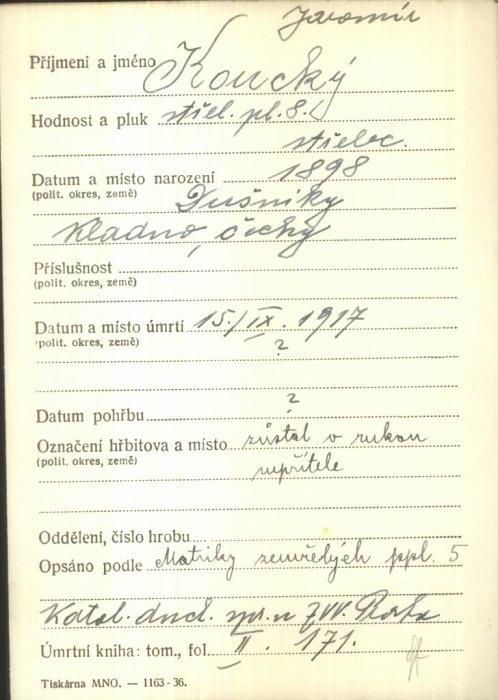 Jaromír
Příjmení a jméno Koucký
Hodnost a pluk střel. pl. 8.
střelec.
Datum a místo narození 1898
(polit. okres, země) Dušníky
Kladno, Čechy
Příslušnost
(polit. okres, země)
Datum a místo úmrtí 15./IX. 1917
(polit. okres, země) ?
Datum pohřbu ?
Označení hřbitova a místo zůstal v rukou
(polit. okres, země) nepřítele
Oddělení, číslo hrobu
Opsáno podle Matriky zemřelých ppl. 5
Katol. duch.
Úmrtní kniha: tom., fol. II. 171.
Tiskárna MNO. — 1163-36.